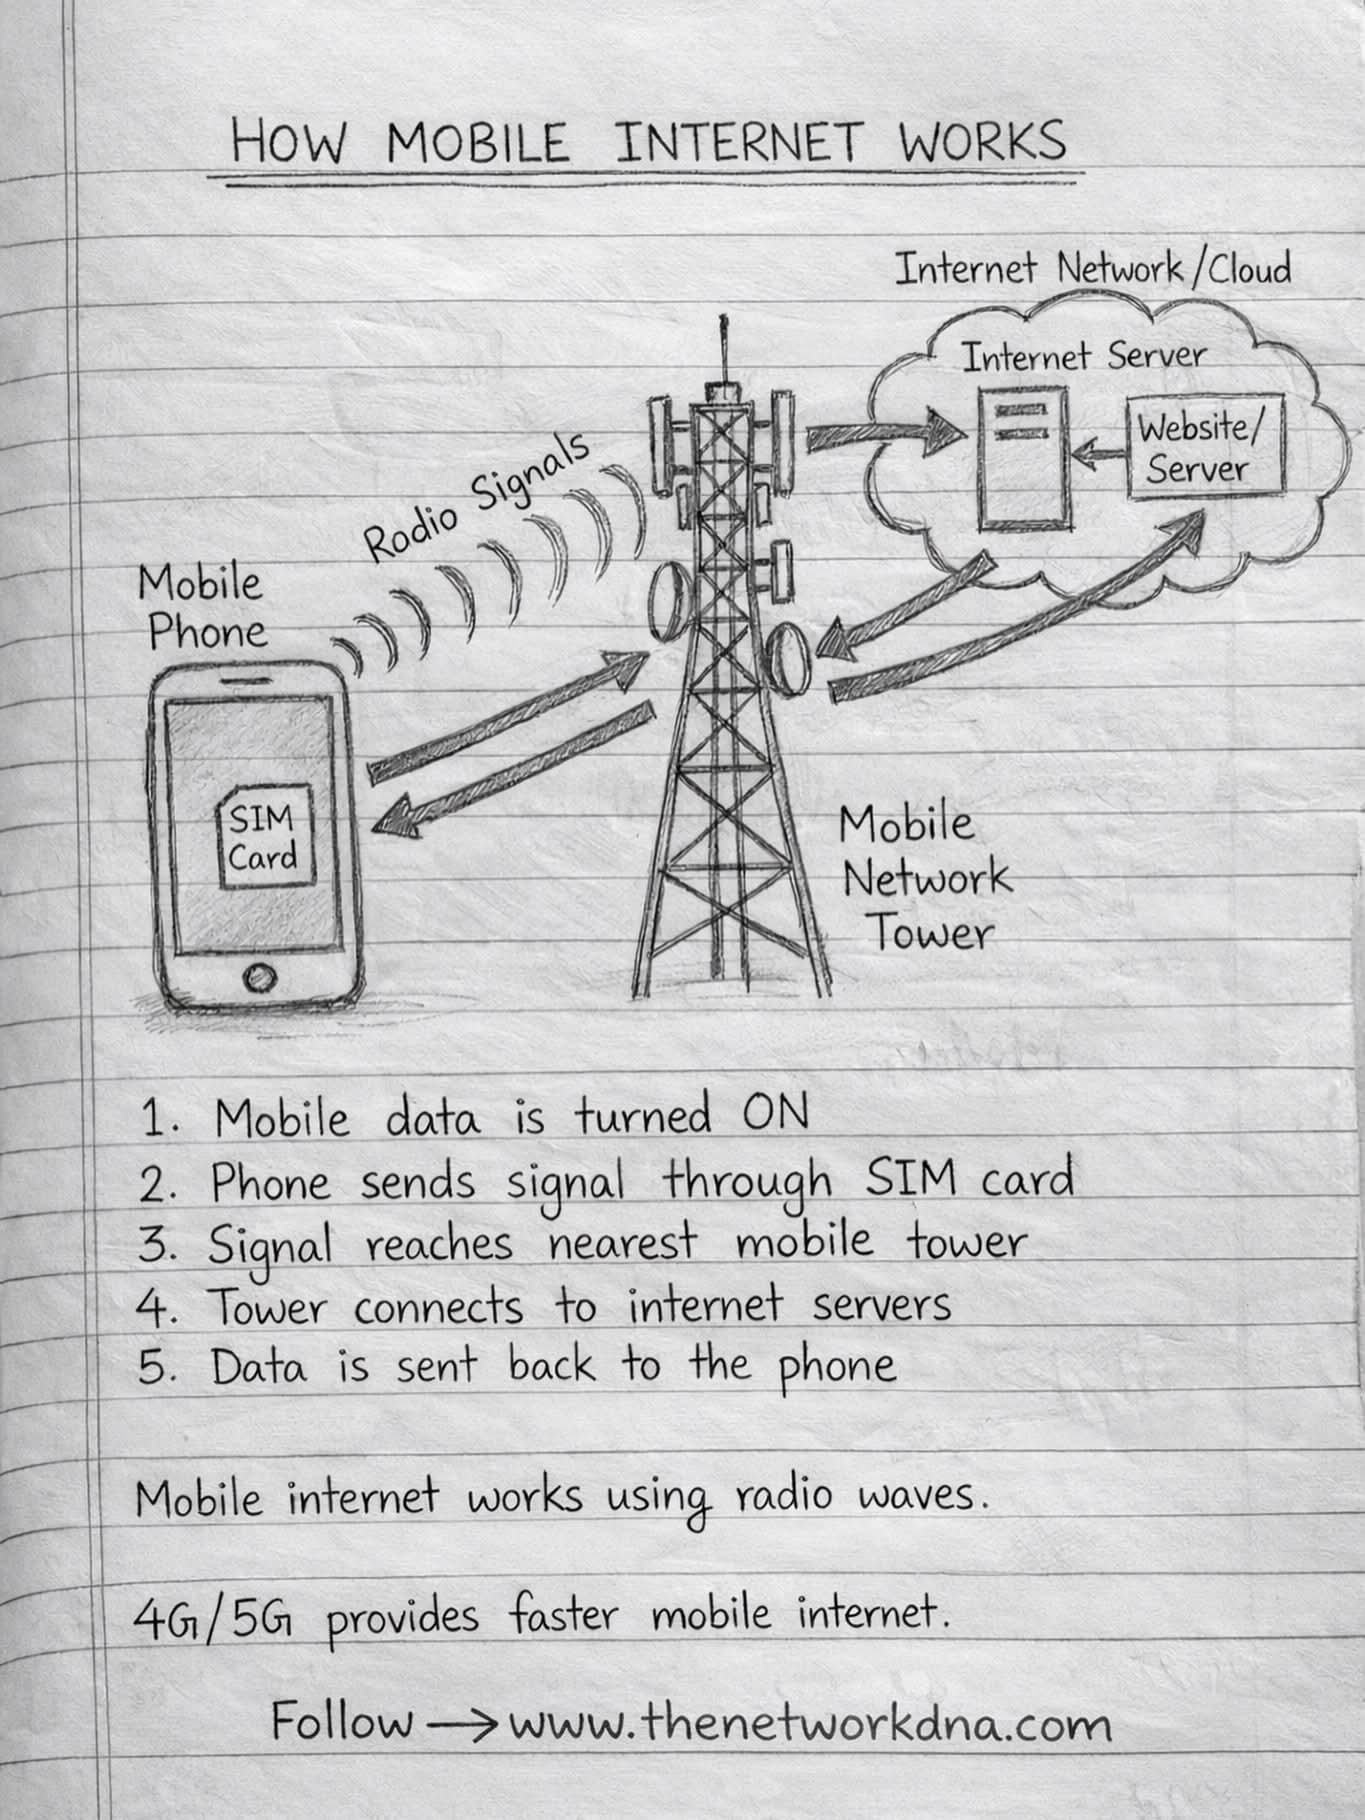 HOW MOBILE INTERNET WORKS
Internet Network/Cloud
Internet Server
Website/
Server
Radio Signals
Mobile
Phone
SIM
Card
Mobile
Network
Tower
1. Mobile data is turned ON
2. Phone sends signal through SIM card
3. Signal reaches nearest mobile tower
4. Tower connects to internet servers
5. Data is sent back to the phone
Mobile internet works using radio waves.
4G/5G provides faster mobile internet.
Follow → www.thenetworkdna.com